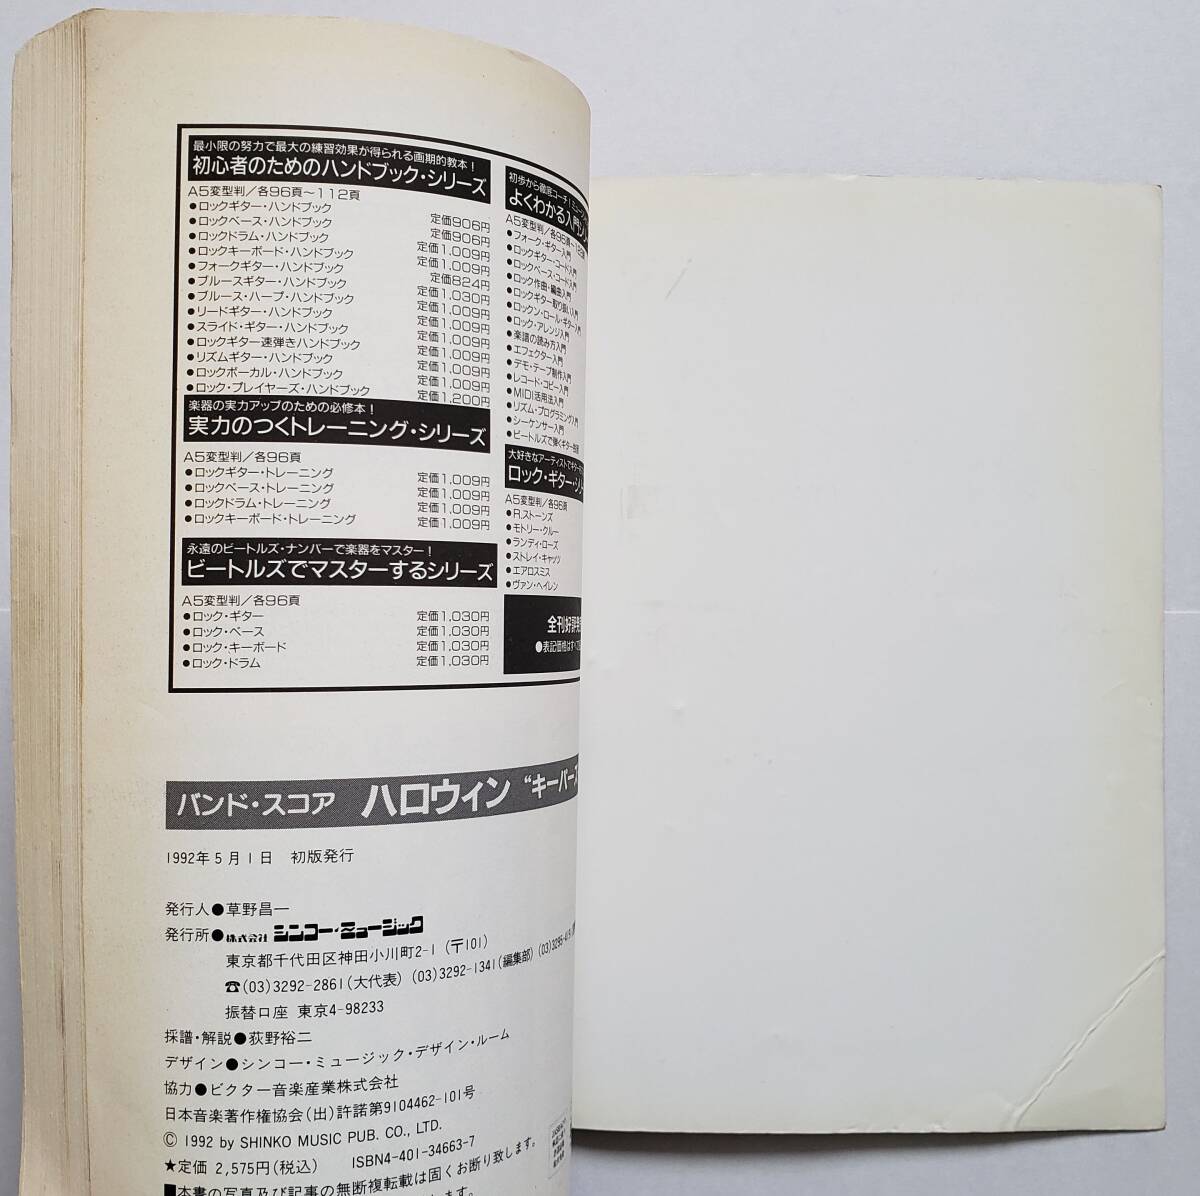 最小限の努力で最大の練習効果が得られる画期的教本！
初心者のためのハンドブック・シリーズ
A5変型判／各96頁～112頁
●ロックギター・ハンドブック 定価906円
●ロックベース・ハンドブック 定価906円
●ロックドラム・ハンドブック 定価1,009円
●ロックキーボード・ハンドブック 定価1,009円
●フォークギター・ハンドブック 定価824円
●ブルースギター・ハンドブック 定価1,030円
●ブルース・ハープ・ハンドブック 定価1,009円
●リードギター・ハンドブック 定価1,009円
●スライド・ギター・ハンドブック 定価1,009円
●ロックギター速弾きハンドブック 定価1,009円
●リズムギター・ハンドブック 定価1,009円
●ロックボーカル・ハンドブック 定価1,009円
●ロック・プレイヤーズ・ハンドブック 定価1,200円
楽器の実力アップのための必修本！
実力のつくトレーニング・シリーズ
A5変型判／各96頁
●ロックギター・トレーニング 定価1,009円
●ロックベース・トレーニング 定価1,009円
●ロックドラム・トレーニング 定価1,009円
●ロックキーボード・トレーニング 定価1,009円
永遠のビートルズ・ナンバーで楽器をマスター！
ビートルズでマスターするシリーズ
A5変型判／各96頁
●ロック・ギター 定価1,030円
●ロック・ベース 定価1,030円
●ロック・キーボード 定価1,030円
●ロック・ドラム 定価1,030円
初歩から徹底コーチ！
よくわかる入門
A5変型判／各96頁
●フォーク・ギター入門
●ロックギター・コード入門
●ロックベース・コード入門
●ロック作曲・編曲入門
●ロックギター取り扱い入門
●ロックン・ロール・ギター入門
●ロック・アレンジ入門
●楽譜の読み方入門
●エフェクター入門
●デモ・テープ制作入門
●レコード・コピー入門
●MIDI活用法入門
●リズム・プログラミング入門
●シーケンサー入門
●ビートルズで弾くギター
大好きなアーティストでギター
ロック・ギター・
A5変型判／各96頁
●R.ストーンズ
●モトリー・クルー
●ランディ・ローズ
●ストレイ・キャッツ
●エアロスミス
●ヴァン・ヘイレン
全刊好評発
●表記価格はすべて
バンド・スコア ハロウィン “キーパーズ
1992年5月1日 初版発行
発行人●草野昌一
発行所●株式会社シンコー・ミュージック
東京都千代田区神田小川町2-1（〒101）
☎(03)3292-2861(大代表) (03)3292-1341(編集部)
振替口座 東京4-98233
採譜・解説●荻野裕二
デザイン●シンコー・ミュージック・デザイン・ルーム
協力●ビクター音楽産業株式会社
日本音楽著作権協会（出）許諾第9104462-101号
© 1992 by SHINKO MUSIC PUB. CO., LTD.
★定価 2,575円(税込) ISBN4-401-34663-7
■本書の写真及び記事の無断複転載は固くお断り致します。
ます。